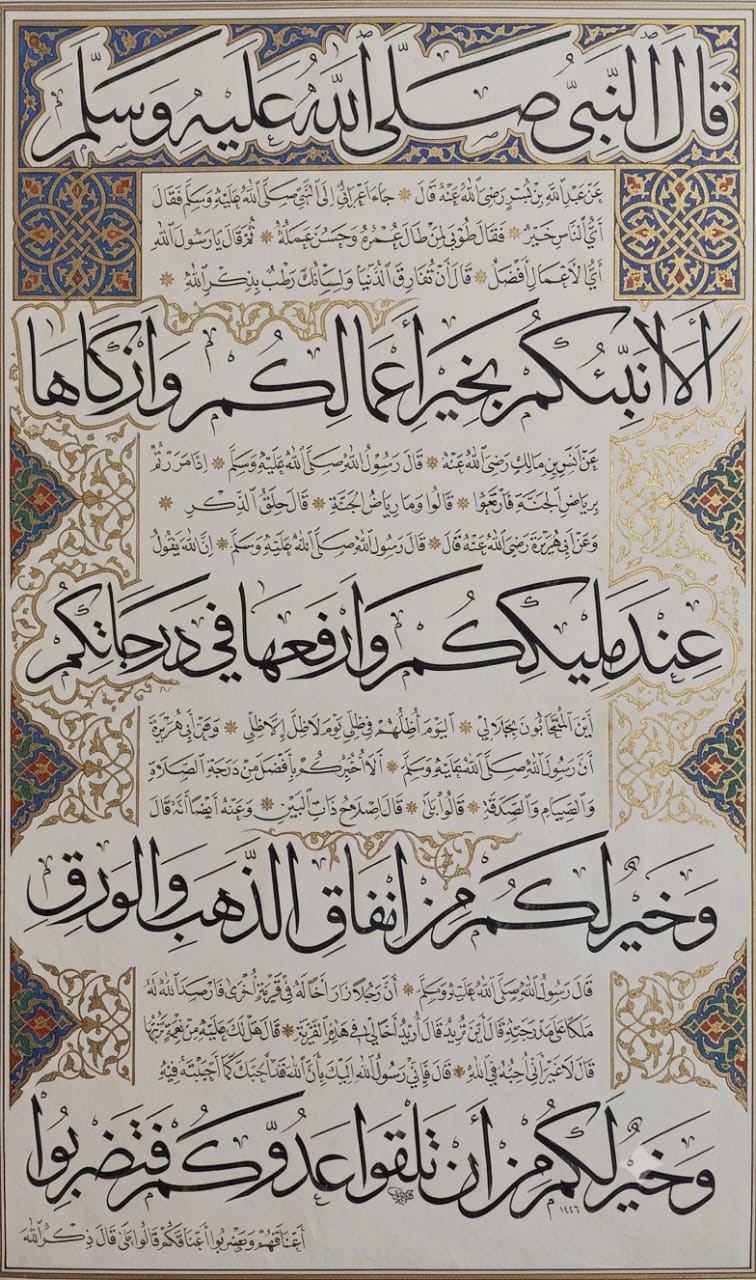 قَالَ النَّبِيُّ صَلَّى اللهُ عَلَيْهِ وَسَلَّمَ
عَنْ عَبْدِ اللهِ بْنِ بُسْرٍ رَضِيَ اللهُ عَنْهُ قَالَ * جَاءَ أَعْرَابِيٌّ إِلَى النَّبِيِّ صَلَّى اللهُ عَلَيْهِ وَسَلَّمَ فَقَالَ
أَيُّ النَّاسِ خَيْرٌ * فَقَالَ طُوبَى لِمَنْ طَالَ عُمُرُهُ وَحَسُنَ عَمَلُهُ * ثُمَّ قَالَ يَا رَسُولَ اللهِ
أَيُّ الْأَعْمَالِ أَفْضَلُ * قَالَ أَنْ تُفَارِقَ الدُّنْيَا وَلِسَانُكَ رَطْبٌ بِذِكْرِ اللهِ *
أَلَا أُنَبِّئُكُمْ بِخَيْرِ أَعْمَالِكُمْ وَأَزْكَاهَا
عَنْ أَنَسِ بْنِ مَالِكٍ رَضِيَ اللهُ عَنْهُ * قَالَ رَسُولُ اللهِ صَلَّى اللهُ عَلَيْهِ وَسَلَّمَ * إِذَا مَرَرْتُمْ
بِرِيَاضِ الْجَنَّةِ فَارْتَعُوا * قَالُوا وَمَا رِيَاضُ الْجَنَّةِ * قَالَ حِلَقُ الذِّكْرِ *
وَعَنْ أَبِي هُرَيْرَةَ رَضِيَ اللهُ عَنْهُ قَالَ * قَالَ رَسُولُ اللهِ صَلَّى اللهُ عَلَيْهِ وَسَلَّمَ * إِنَّ اللهَ يَقُولُ
عِنْدَ مَلِيكِكُمْ وَأَرْفَعِهَا فِي دَرَجَاتِكُمْ
أَيْنَ الْمُتَحَابُّونَ بِجَلَالِي * الْيَوْمَ أُظِلُّهُمْ فِي ظِلِّي يَوْمَ لَا ظِلَّ إِلَّا ظِلِّي * وَعَنْ أَبِي هُرَيْرَةَ
أَنَّ رَسُولَ اللهِ صَلَّى اللهُ عَلَيْهِ وَسَلَّمَ * أَلَا أُخْبِرُكُمْ بِأَفْضَلَ مِنْ دَرَجَةِ الصَّلَاةِ
وَالصِّيَامِ وَالصَّدَقَةِ * قَالُوا بَلَى * قَالَ إِصْلَاحُ ذَاتِ الْبَيْنِ * وَعَنْهُ أَيْضًا أَنَّهُ قَالَ
وَخَيْرٌ لَكُمْ مِنْ إِنْفَاقِ الذَّهَبِ وَالْوَرِقِ
قَالَ رَسُولُ اللهِ صَلَّى اللهُ عَلَيْهِ وَسَلَّمَ * أَنَّ رَجُلًا زَارَ أَخًا لَهُ فِي قَرْيَةٍ أُخْرَى فَأَرْصَدَ اللهُ لَهُ
مَلَكًا عَلَى مَدْرَجَتِهِ قَالَ أَيْنَ تُرِيدُ قَالَ أُرِيدُ أَخًا لِي فِي هَذِهِ الْقَرْيَةِ * قَالَ هَلْ لَكَ عَلَيْهِ مِنْ نِعْمَةٍ تَرُبُّهَا
قَالَ لَا غَيْرَ أَنِّي أُحِبُّهُ فِي اللهِ * قَالَ فَإِنِّي رَسُولُ اللهِ إِلَيْكَ بِأَنَّ اللهَ قَدْ أَحَبَّكَ كَمَا أَحْبَبْتَهُ فِيهِ
وَخَيْرٌ لَكُمْ مِنْ أَنْ تَلْقَوْا عَدُوَّكُمْ فَتَضْرِبُوا
١٤٤٦
أَعْنَاقَهُمْ وَيَضْرِبُوا أَعْنَاقَكُمْ قَالُوا بَلَى قَالَ ذِكْرُ اللهِ